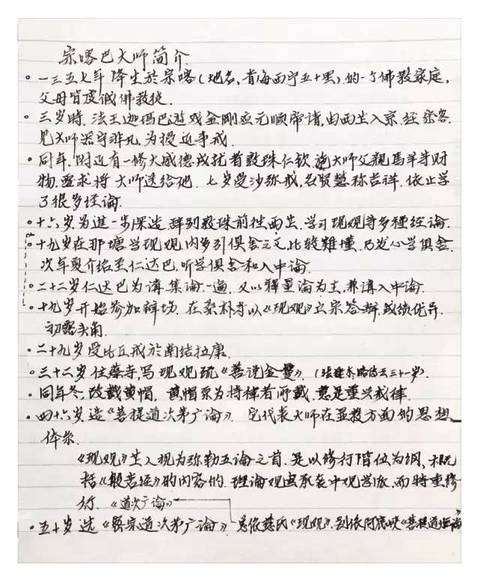 宗喀巴大师简介
。一三五七年降生於宗喀（地名，青海西宁五十里）的一个佛教家庭，
父母皆虔诚佛教徒。
。三岁时，法王迦玛巴游戏金刚应元顺帝请，由西藏入京，经宗喀，
见大师器宇非凡，为授近事戒。
。同年，附近有一修大威德成就者敦珠仁钦施大师父亲马羊等财
物，要求将大师送给他。七岁受沙弥戒，名贤慧称吉祥，依止学
了很多经论。
。十六岁为进一步深造，辞别敦珠前往西藏，学习现观等多种经论。
。十九岁在那塘学现观，内多引俱舍之文，比较难懂，乃发心学俱舍，
次年夏介绍至仁达巴，听学俱舍和入中论。
。二十二岁仁达巴为讲集论一遍，又以释量论为主，兼讲入中论。
。十九岁开始参加辩场，在桑朴寺以《现观》立宗答辩，成绩优异，
初露头角。
。二十九岁受比丘戒於南结拉康。
。三十二岁住蔡寺，写现观疏《善说金鬘》。
。同年冬，改戴黄帽，黄帽系为持律者所戴，意是重兴戒律。
。四十六岁造《菩提道次第广论》。它代表大师在显教方面的思想
体系
《现观》生入视为弥勒五论之首，是以修行阶位为纲，概
括《般若经》的内容的，理论观点系至中观宗派，而特重修
行。《道次广论》
。五十岁造《密宗道次第广论》 是依慈氏《现观》，到依阿底峡《菩提道炬论》